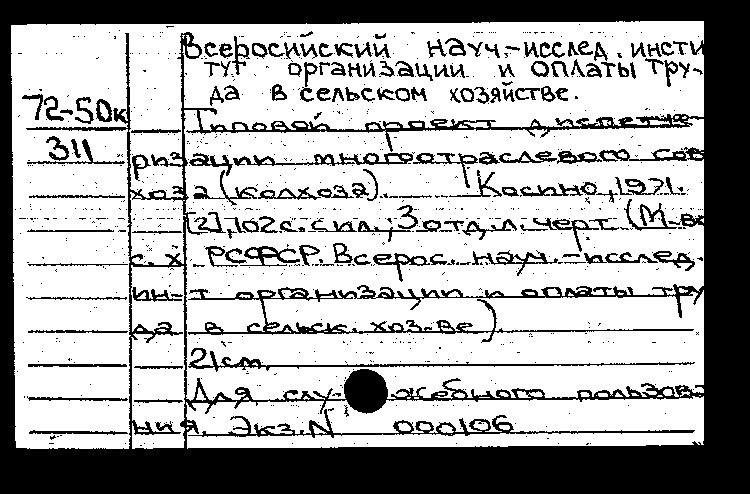 Всеросийский науч.-исслед. инсти
тут организации и оплаты тру-
да в сельском хозяйстве.
72-50к
Типовой проект диспетче-
311
ризации многоотраслевого сов
хоза (колхоза). Косино, 1971.
[2], 102 с. с ил.; 3 отд. л. черт. (М-во
с. х. РСФСР. Всерос. науч.-исслед.
ин-т организации и оплаты тру
да в сельск. хоз-ве).
21 см.
Для слу-жебного пользова
ния. Экз. N 000106